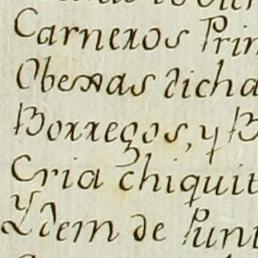 Carneros Prim
Obexas dicha
Borregos, y B
Cria chiquit
Ydem de Punt